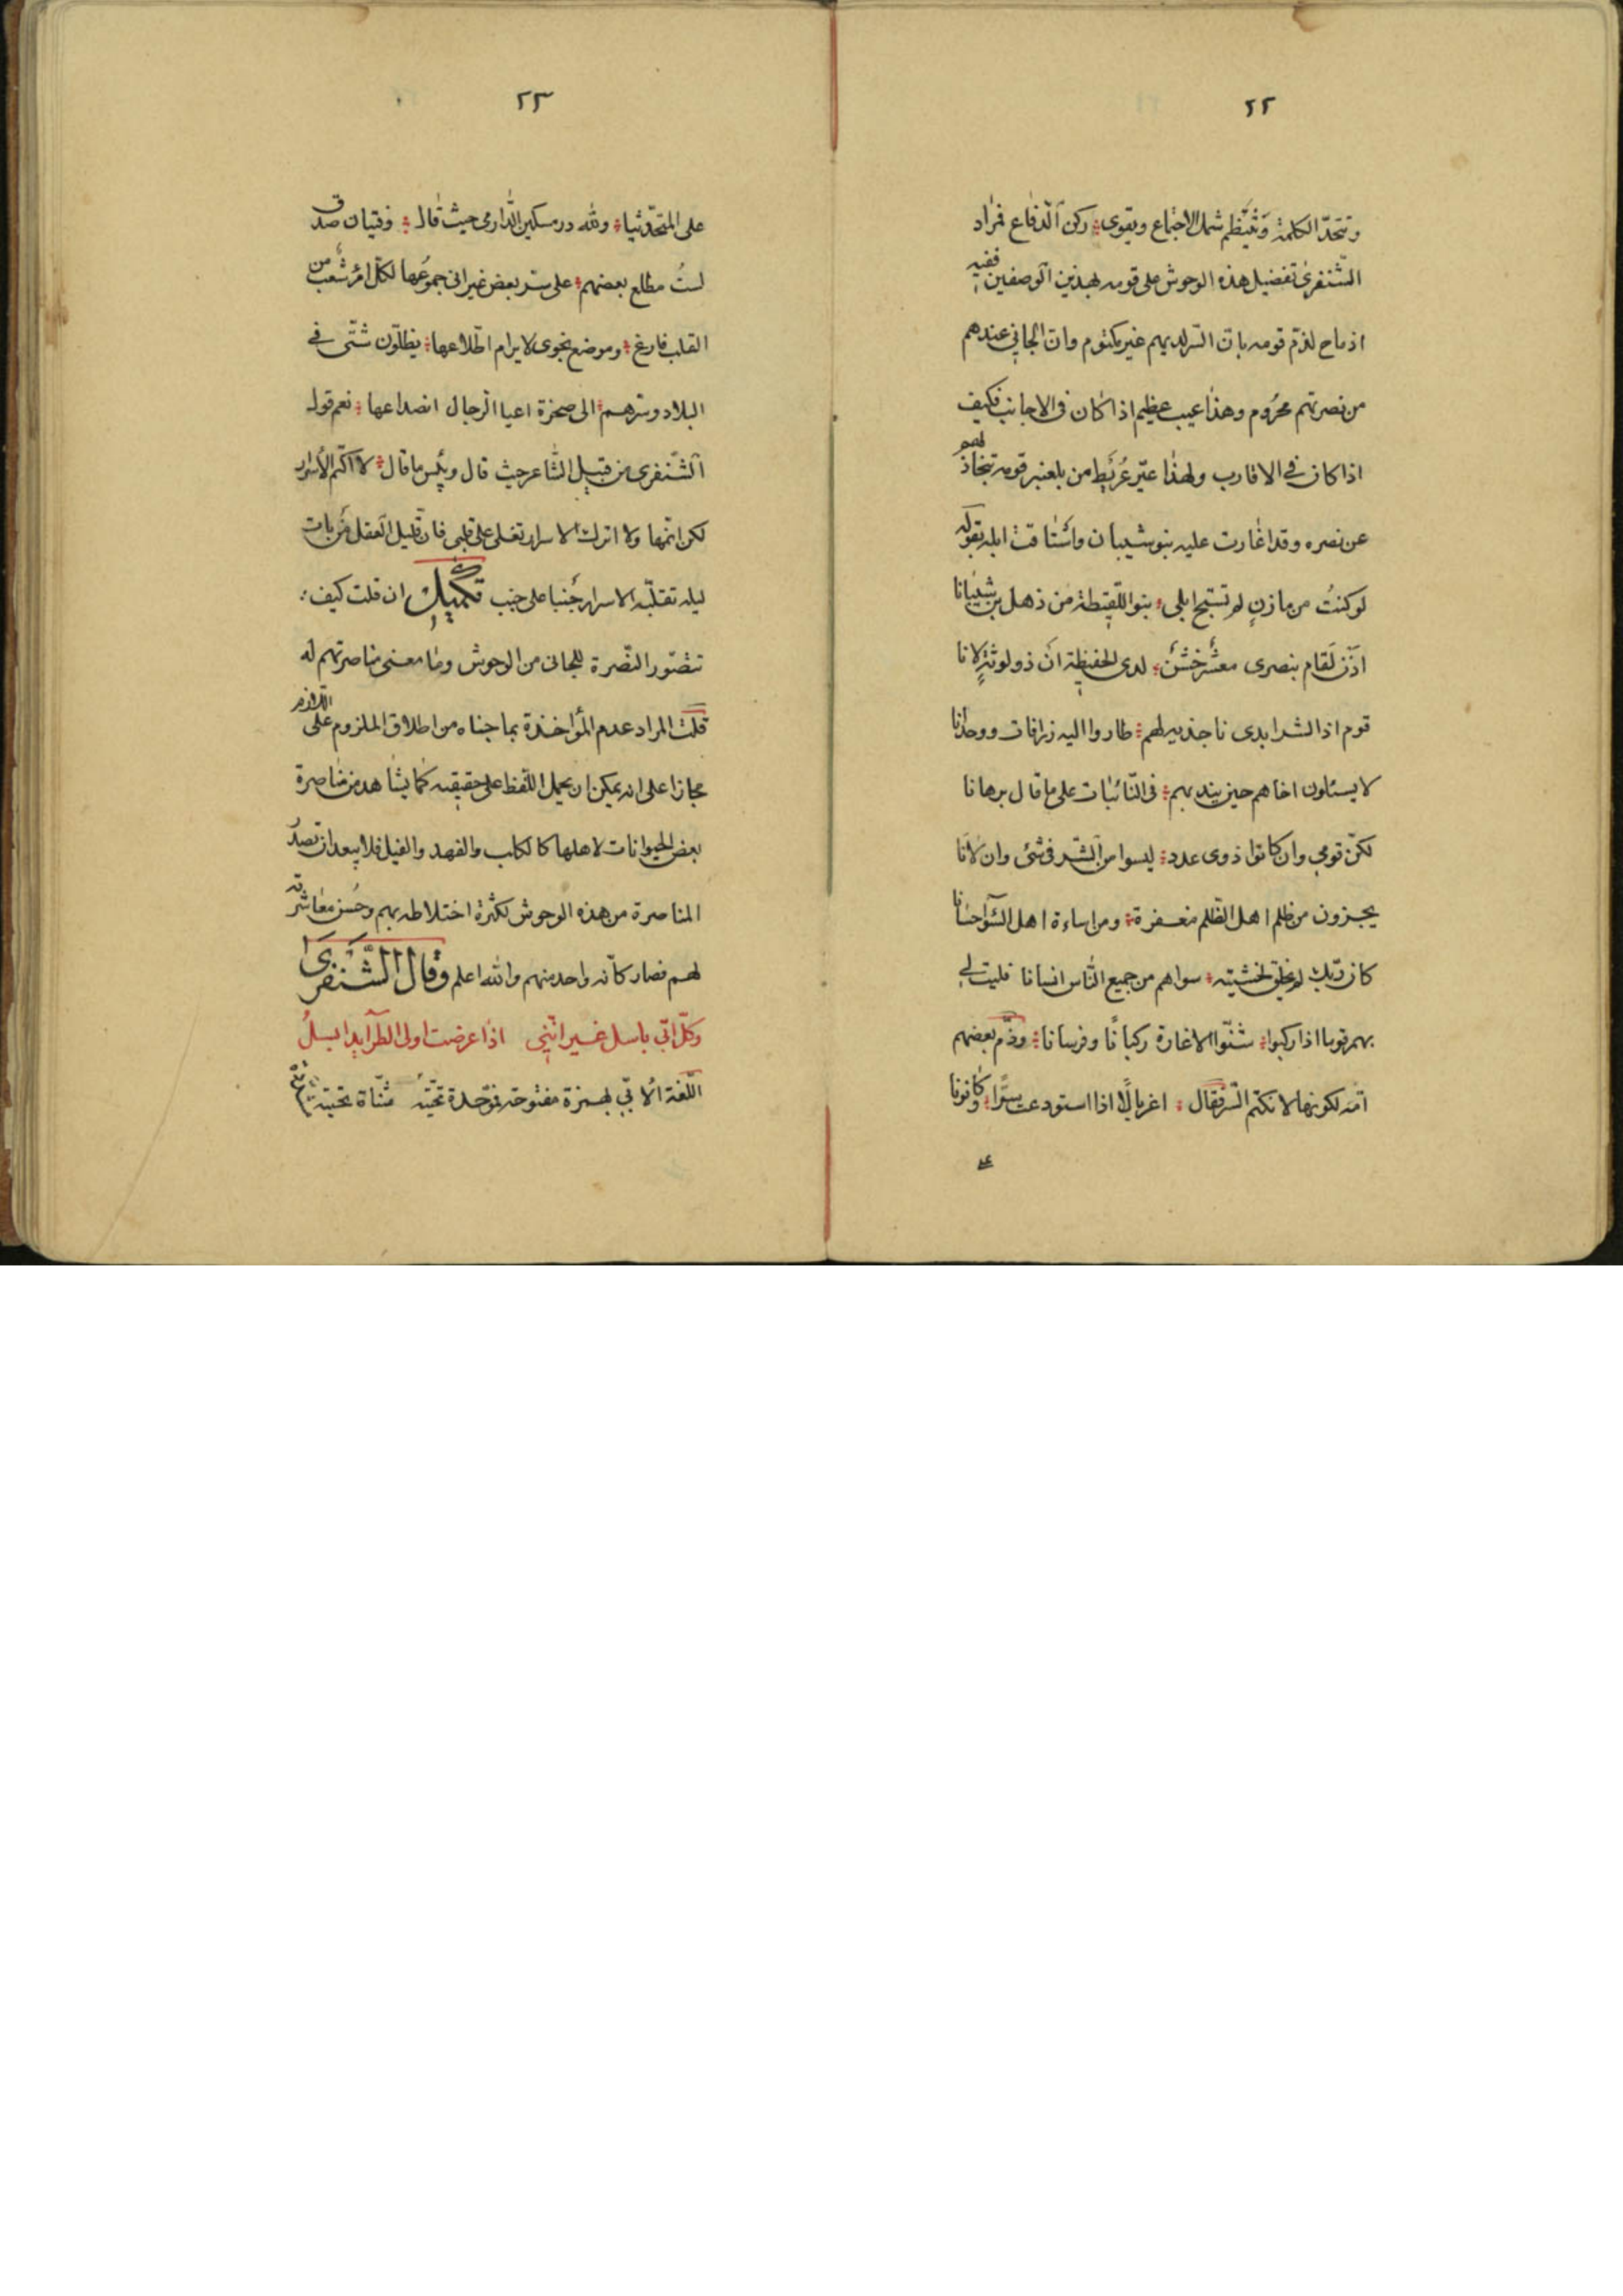 ٢٢
وتتحد الكلمة وينتظم شمل الاجتماع ويقوى ركن الدفاع فمراد
الشنفرى تفضيل هذه الوحوش على قومه بهذين الوصفين ففيه
ادماج لذم قومه بان السر لديهم غير مكتوم وان الجاني عندهم
من نصرتهم محروم وهذا عيب عظيم اذا كان في الاجانب فكيف
اذا كان في الاقارب ولهذا عيّر قريط من بلعنبر قومه بتخاذلهم
عن نصره وقد اغارت عليه بنو شيبان واستاقت ابله بقوله
لو كنتُ من مازنٍ لم تستبح ابلي بنو اللقيطة من ذهل بن شيبانا
اذن لقام بنصرى معشر خشن لدى الحفيظة ان ذو لوثةٍ لانا
قوم اذا الشر ابدى ناجذيه لهم طاروا اليه زرافات ووحدانا
لا يسئلون اخاهم حين يندبهم في النّائبات على ما قال برهانا
لكنّ قومي وان كانوا ذوى عدد ليسوا من الشّر في شئ وان لانا
يجزون من ظلم اهل الظلم مغفرة ومن اساءة اهل السّوء احسانا
كان ربك لم يخلق لخشيته سواهم من جميع النّاس انسانا فليت لي
بهم قوما اذا ركبوا شنّوا الاغارة ركبانًا وفرسانا وذمّ بعضهم
امّه لكونها لا تكتم السّر فقال اغربالًا اذا استودعت سرًّا وكانونا
على
٢٣
على المتحدّثينا ولله در مسكين الدارمي حيث قال وفتيان صدق
لستُ مطلع بعضهم على سرّ بعض غير اني جموعها لكل امرء شعب من
القلب فارغ وموضع نجوى لا يرام اطّلاعها يظلّون شتّى في
البلاد وسرهم الى صخرة اعيا الرجال انصداعها نعم قوله
الشّنفرى من قبيل الشاعر حيث قال وبئس ما قال لا اكتم الأسرار
لكن انمّها ولا اترك الاسرار تغلى على قلبي فان قليل العقل من بات
ليله تقلّبه الاسرار جنبا على جنب تكميل ان قلت كيف
تتصّور النّصرة للجاني من الوحوش وما معنى مناصرتهم له
قلت المراد عدم المؤاخذة بما جناه من اطلاق الملزوم على اللازم
مجازا على انه يمكن ان يحمل اللّفظ على حقيقته كما يشاهد من مناصرة
بعض الحيوانات لاهلها كالكلب والفهد والفيل فلا يبعد ان تصدر
المناصرة من هذه الوحوش لكثرة اختلاطه بهم وحسن معاشرته
لهم فصار كأنه واحد منهم والله اعلم وقال الشّنفرى
وكلّ ابيّ باسل غير انّني اذا عرضت اولى الطرآيد ابسلُ
اللّغة الأبيّ بهمزة مفتوحة فموّحدة تحتيّة مثنّاة تحتيّة